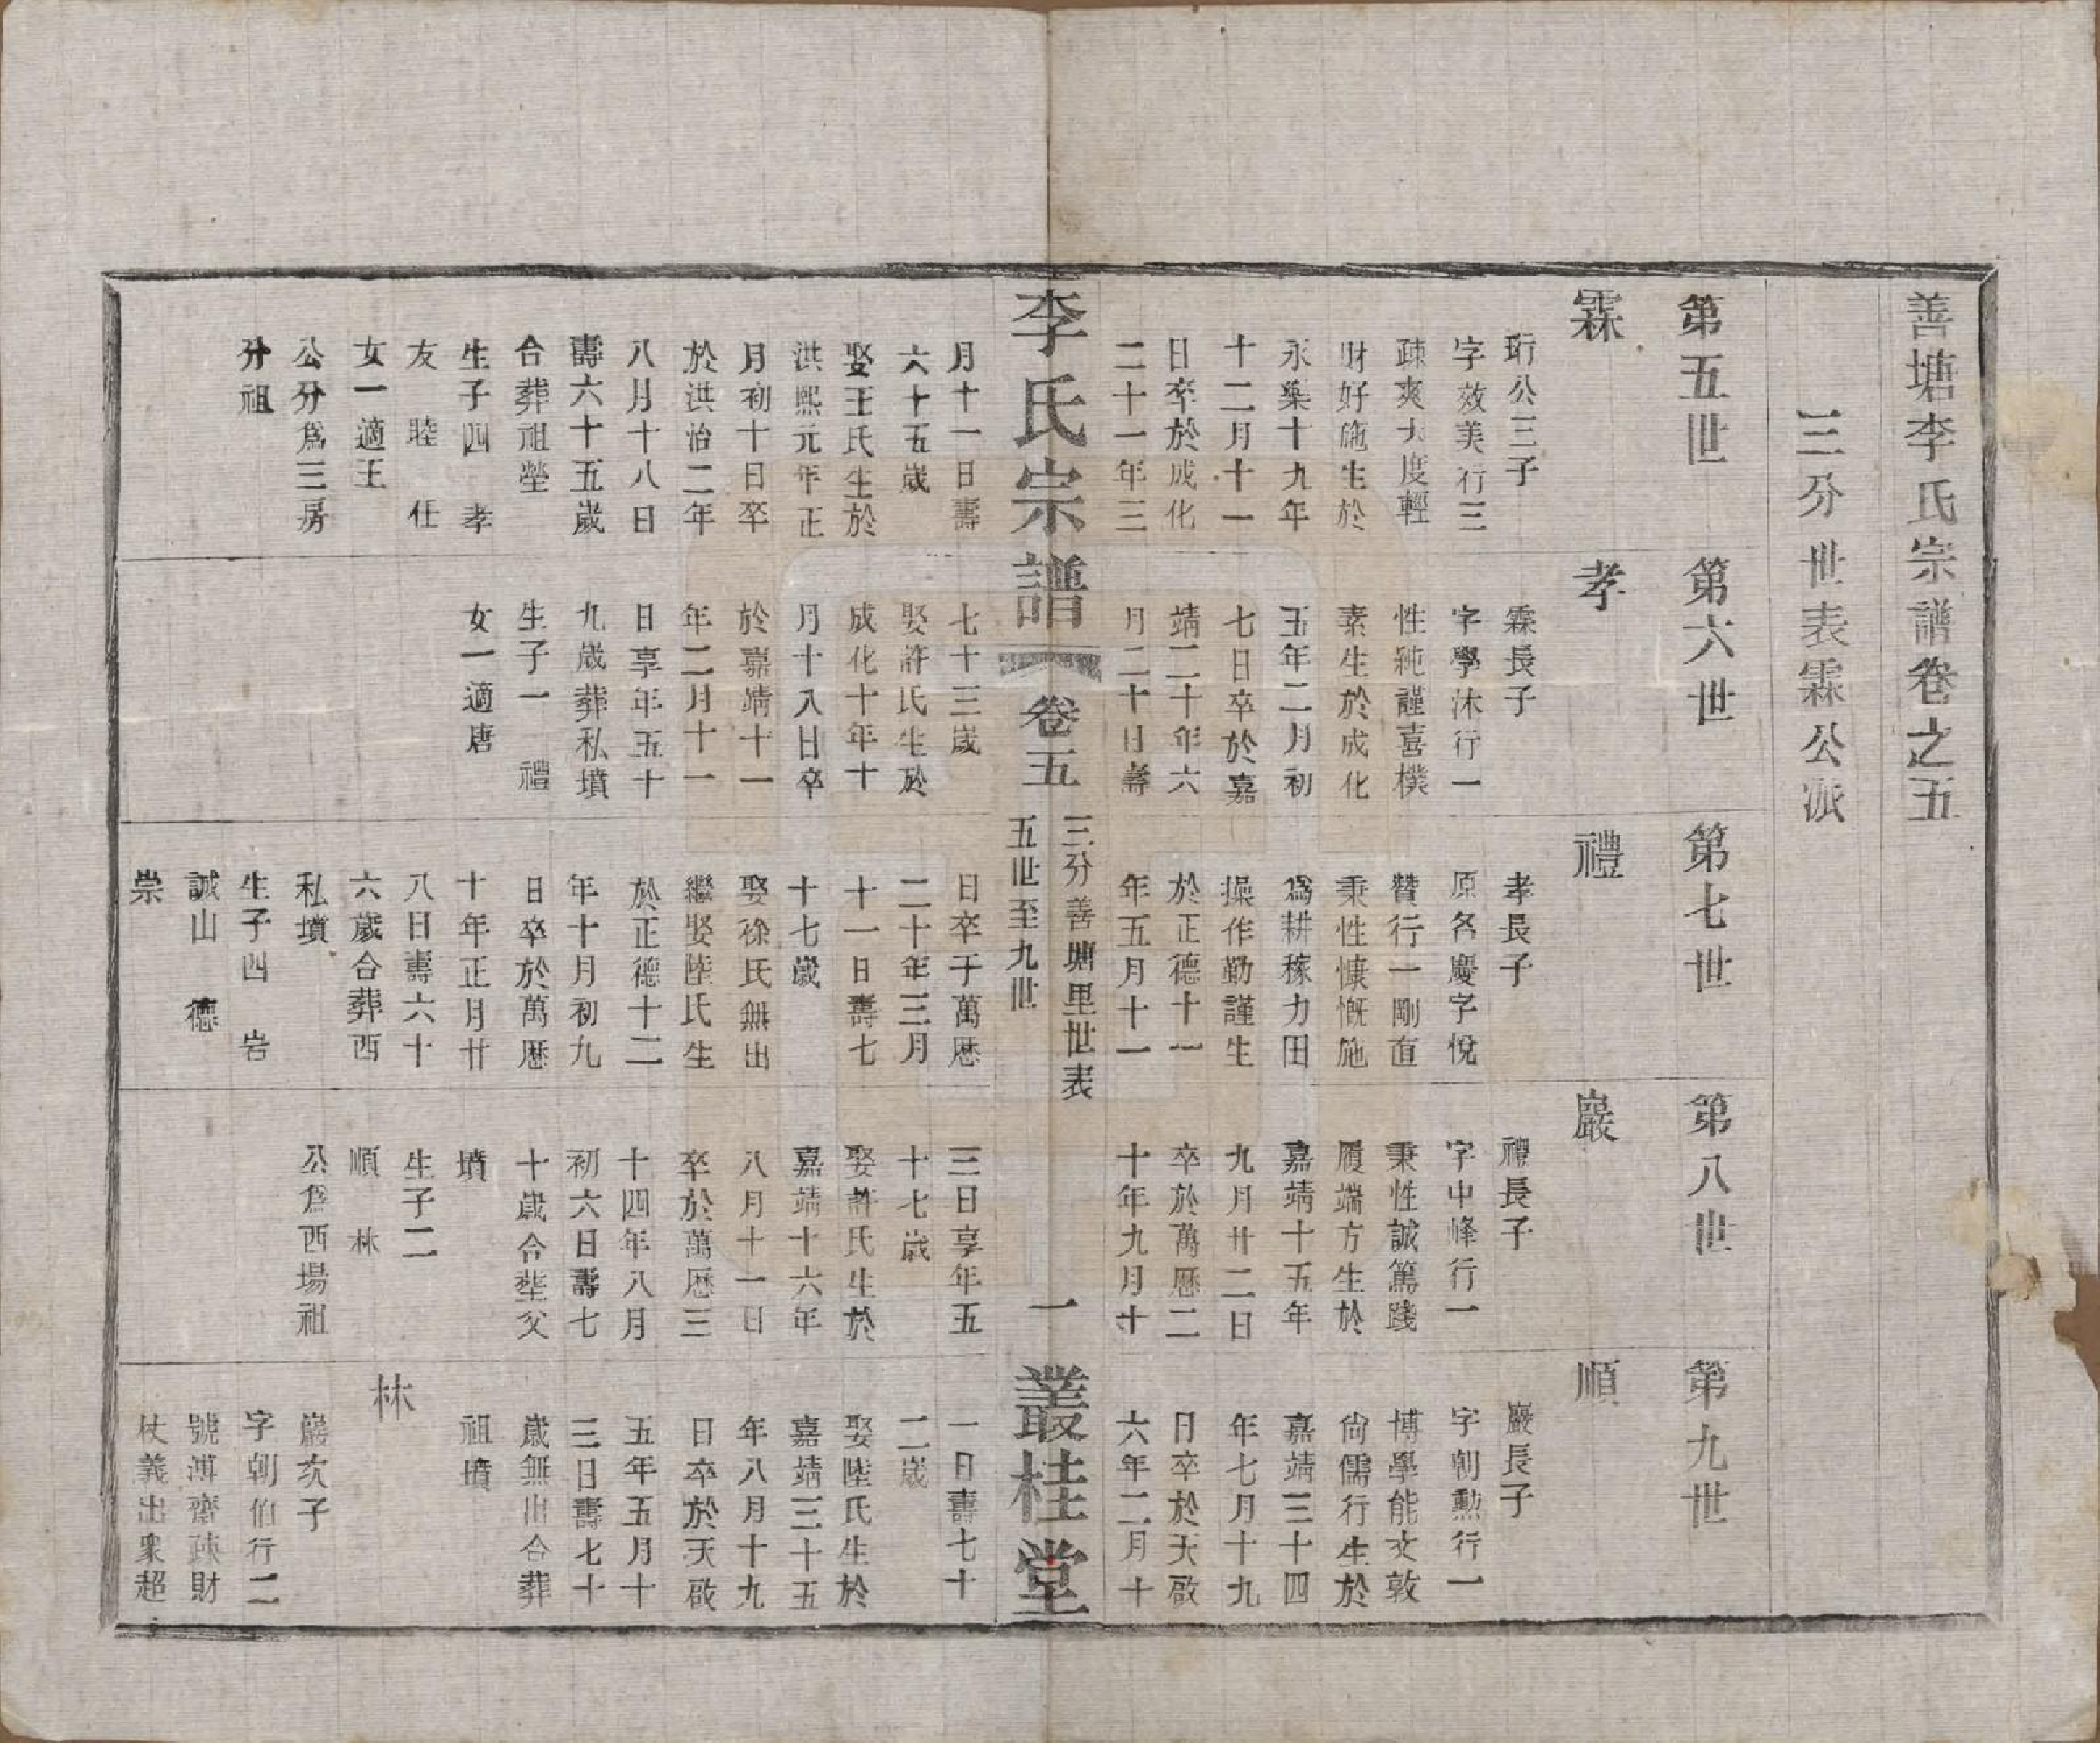 善塘李氏宗譜卷之五
三分世表霖公派
第五世
霖
珩公三子
字效美行三
疎爽大度輕
財好施生於
永樂十九年
十二月十一
日卒於成化
二十一年三
月十一日壽
六十五歲
娶王氏生於
洪熙元年正
月初十日卒
於洪治二年
八月十八日
壽六十五歲
合葬祖塋
生子四 孝
友 睦 仕
女一適王
公分爲三房
分祖
第六世
孝
霖長子
字學沐行一
性純謹喜樸
素生於成化
五年二月初
七日卒於嘉
靖二十年六
月二十日壽
七十三歲
娶許氏生於
成化十年十
月十八日卒
於嘉靖十一
年二月十一
日享年五十
九歲葬私墳
生子一 禮
女一適唐
第七世
禮
孝長子
原名慶字悅
賛行一剛直
秉性慷慨施
爲耕稼力田
操作勤謹生
於正德十一
年五月十一
日卒于萬厯
二十年三月
十一日壽七
十七歲
娶徐氏無出
繼娶陸氏生
於正德十二
年十月初九
日卒於萬厯
十年正月廿
八日壽六十
六歲合葬西
私墳
生子四 岩
誠山 德
崇
第八世
巖
禮長子
字中峰行一
秉性誠篤踐
履端方生於
嘉靖十五年
九月廿二日
卒於萬厯二
十年九月十
三日享年五
十七歲
娶許氏生於
嘉靖十六年
八月十一日
卒於萬厯三
十四年八月
初六日壽七
十歲合塟父
墳
生子二
順 林
公爲西場祖
第九世
順
巖長子
字朝勲行一
博學能文敦
尙儒行生於
嘉靖三十四
年七月十九
日卒於天啟
六年二月十
一日壽七十
二歲
娶陸氏生於
嘉靖三十五
年八月十九
日卒於天啟
五年五月十
三日壽七十
歲無出合葬
祖墳
林
巖次子
字朝伯行二
號溥齋疎財
杖義出衆超
李氏宗譜
卷五
三分善塘里世表
五世至九世
一
叢桂堂